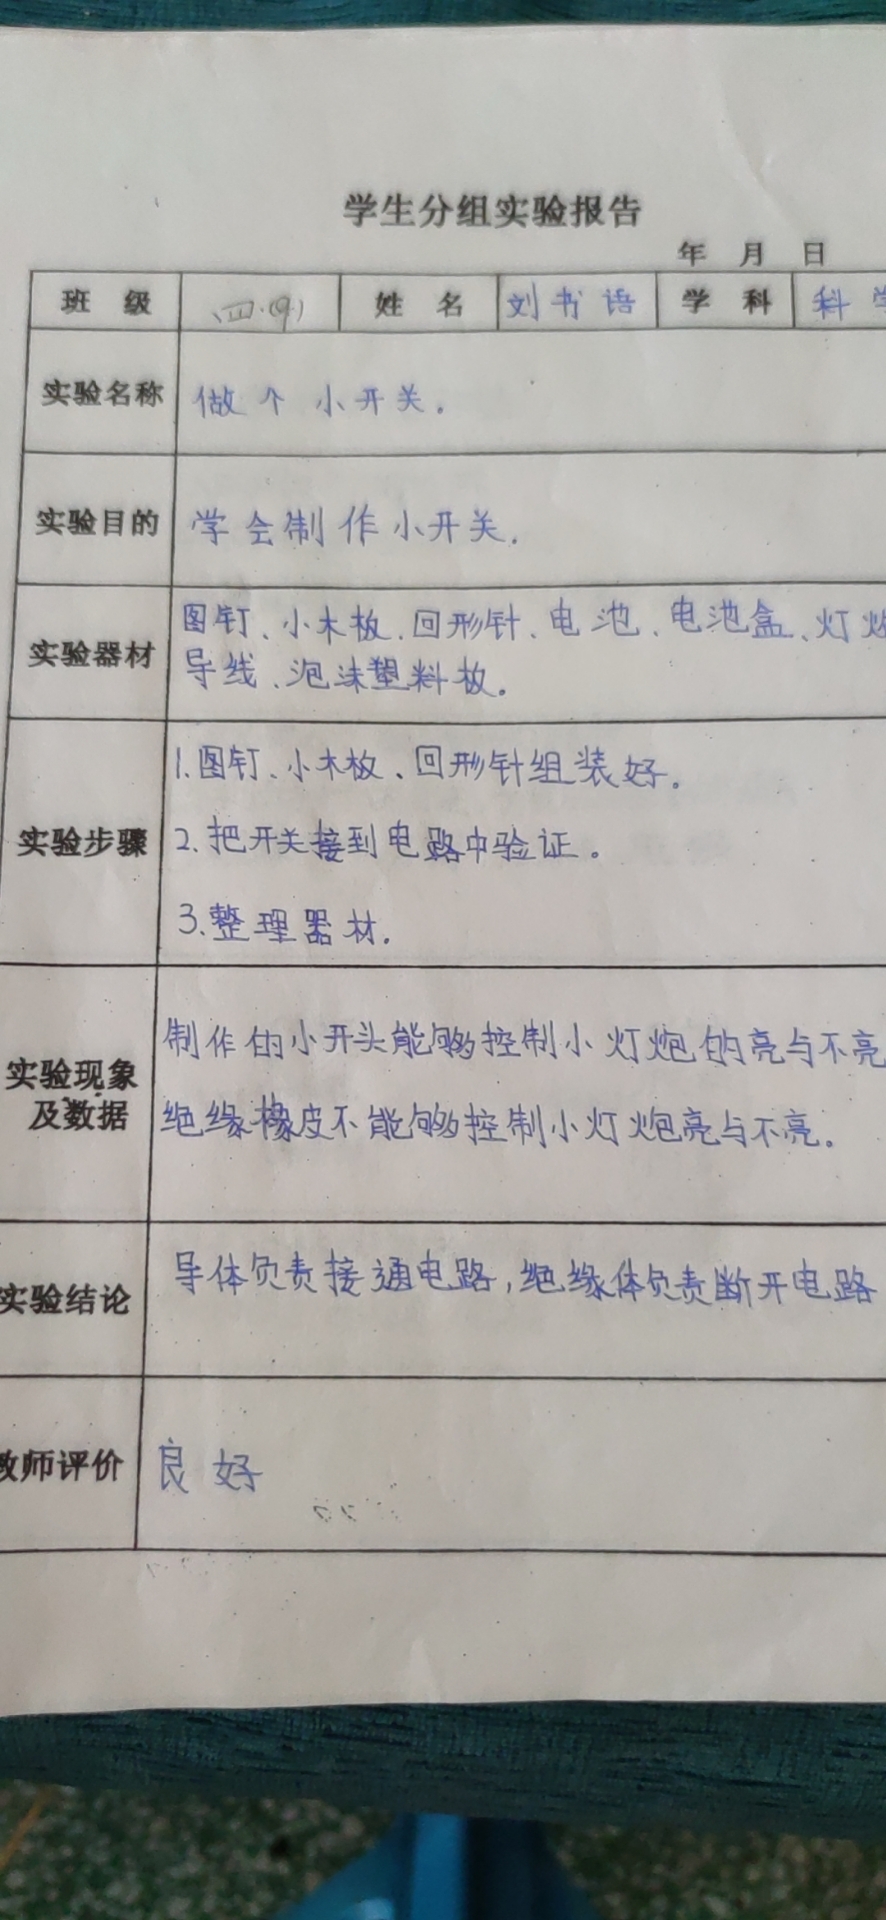 学生分组实验报告
年 月 日
班 级 四.(9) 姓 名 刘书语 学 科 科学
实验名称 做个小开关.
实验目的 学会制作小开关.
实验器材 图钉、小木板、回形针、电池、电池盒、灯炮
导线、泡沫塑料板.
实验步骤 1.图钉、小木板、回形针组装好.
2.把开关接到电路中验证.
3.整理器材.
实验现象及数据 制作的小开头能够控制小灯炮的亮与不亮
绝缘橡皮不能够控制小灯炮亮与不亮.
实验结论 导体负责接通电路,绝缘体负责断开电路
教师评价 良好